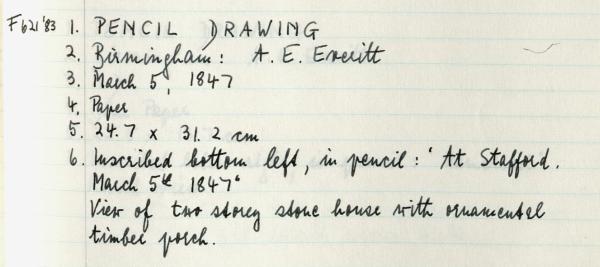 F621'83 1. PENCIL DRAWING
2. Birmingham: A. E. Everitt
3. March 5, 1847
4. Paper
5. 24.7 x 31.2 cm
6. Inscribed bottom left, in pencil: 'At Stafford.
March 5th 1847'
View of two storey stone house with ornamental
timber porch.